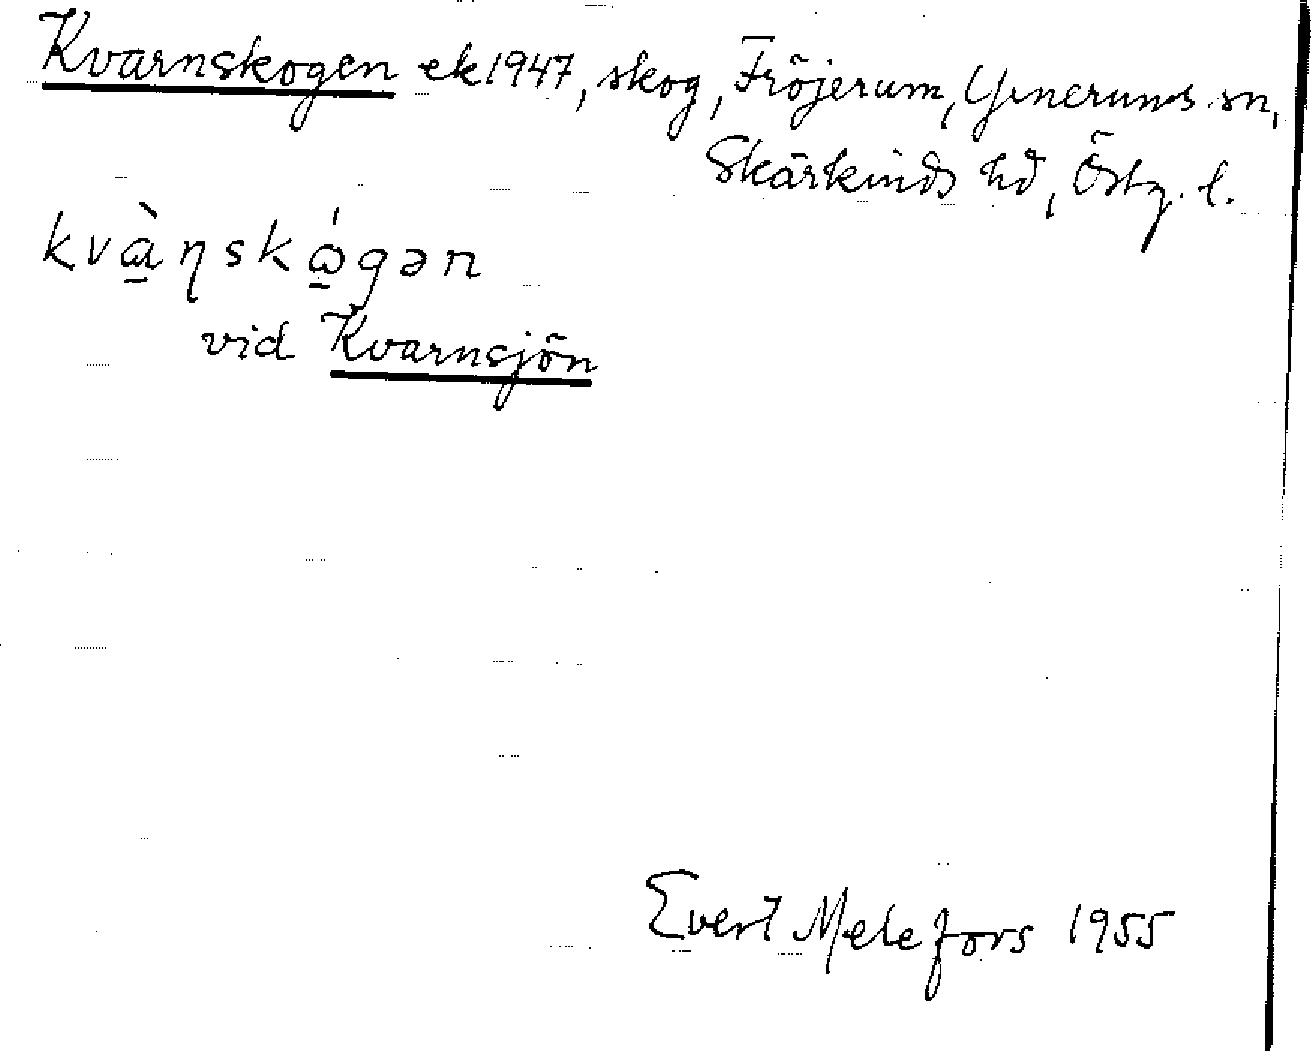 Kvarnskogen ek 1947, skog, Fröjerum, Yxnerums sn,
Skärkinds hd, Östg. l.
kvɑ̱̀ɳskɷ̱́gən
vid Kvarnsjön
Evert Melefors 1955